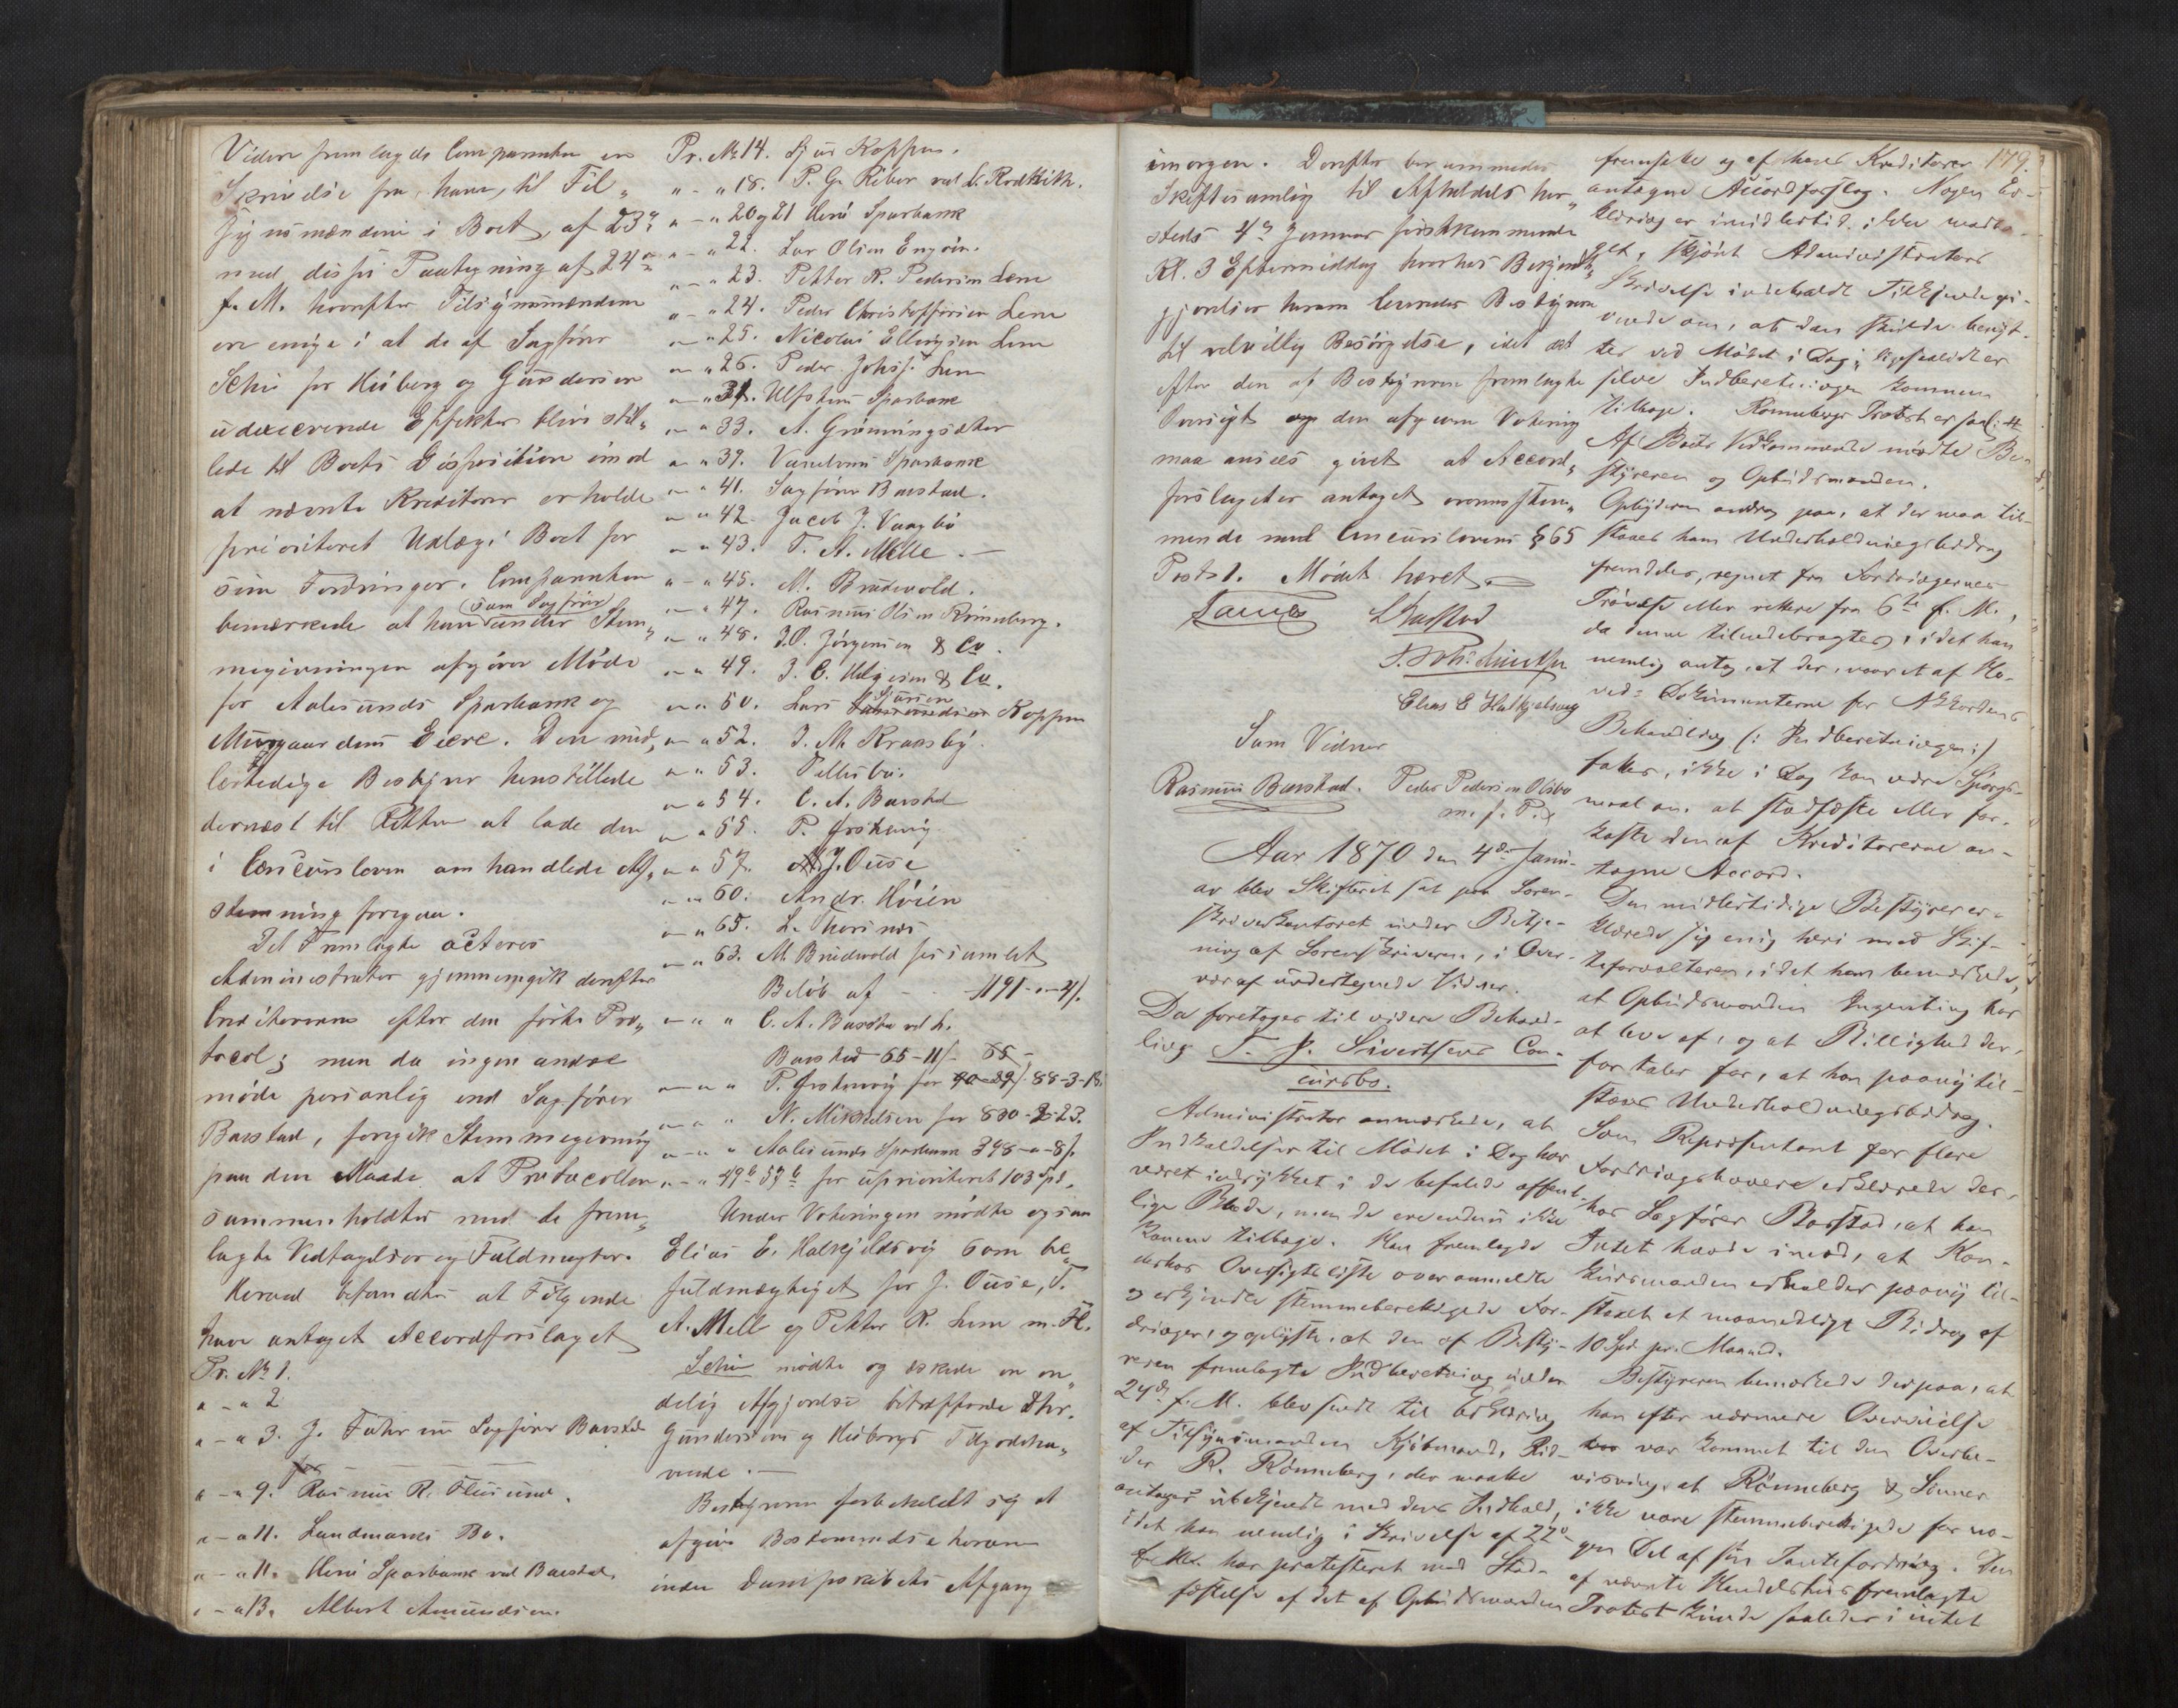 Videre fremlagde Comparenten en
Skrivelse fra ham til Til„
synsmændene i Boet, af 23de
med disses Paategning af 24de
f. M. hvorefter Tilsynsmændene
ere enige i at de af Sagfører
Schie for Huiberg og Gundersen
udleverede Effekter blive stil„
lede til Boets Disposition imod
at nævnte Kreditorer erholde
prioriteret Udlæg i Boet for
sine Fordringer. Comparenten
bemærkede at han (som Sagfører) under Stem„
megivningen afgiver Møde
for Aalesunds Sparbank og
Muusgaardens Eiere. Den mid„
lertidige Bestyrer henstillede
dernæst til Retten at lade den
i Concursloven omhandlede Af„
stemning foregaa.
Det Fremlagte acteres
Administrator gjennemgik derefter
Creditorerne efter den førte Pro„
tocol; men da ingen andre
møde personlig end Sagfører
Barstad, foregik Stemmegivning
paa den Maade at Protocollen
sammenholdtes med de frem„
lagte Vedtagelser og Fuldmagter.
Herved befandtes at Følgende
have antaget Accordforslaget
Pr. No 1.
" - " 2
" - " 3. J. Fuhr ved Sagfører Barstad
" - " 9. Rasmus R. Flusund.
" - " 11. Landmarks Bo.
" - " 11. Herø Sparbank ved Barstad.
" - " 13. Albert Amundsen.
Pr. No 14. Sjur Koppen.
" - " 18. P. G. Riber ved L. Rodkith.
" - " 20 og 21 Herø Sparbank
" - " 22. Lar Olsen Engøen.
" - " 23. Petter R. Pedersen Leme
" - " 24. Peder Christoffersen Leme
" - " 25. Nicolai Ellingsen Leme
" - " 26. Peder Johs. Leme
" - " 31. Ulfstens Sparbank
" - " 33. A. Grønningsæter
" - " 39. Vanelvens Sparbank
" - " 41. Sagfører Barstad.
" - " 42. Jacob J. Vaagbø
" - " 43. T. A. Melle.
" - " 45. M. Brudevold.
" - " 47. Rasmus Olsen Rønneberg.
" - " 48. J. O. Jørgensen & Co.
" - " 49. J. C. Helgesen & Co.
" - " 50. Lars Sjursen Koppen
" - " 52. J. M. Kraasby.
" - " 53. Pallesbu.
" - " 54. C. A. Barstad
" - " 55. P. Froknevig
" - " 57. J. Ouse
" - " 60. Andr. Høien
" - " 65. L. Thorsnes
" - " 63. M. Brudevold for samlet
Beløb af - 1191 - " - 4/.
" - " " C. A. Barstad ved L.
Barstad - 65 - 11/-
" - " " P. Froknevig for 88-3-18.
" - " " N. Mikkelsen for 830-2-23.
" - " " Aalesunds Sparbank 348 - " - 8/.
" - " 49b 57b for uprioriteret 103 Spd.
Under Voteringen mødte ogsaa
Elias E. Halkjelsvig som be„
fuldmægtiget for J. Ouse, T.
A. Mell og Petter R. Leme m. Fl.
Schie mødte og æskede en en„
delig Afgjørelse betræffende Hr.
Gundersens og Huibergs Tilgodeha„
vende. —
Bestyreren forbeholdt sig at
afgive Bestemmelse herom
inden Dampskibets Afgang
179.
imorgen. Derefter berammedes
Skiftesamling til Afholdelse her„
steds 4de Januar førstkommende
Kl. 3 Eftermiddag hvorhos Bekjendt„
gjørelser herom leveredes Bestyreren
til velvillig Besørgelse, idet det
efter den af Bestyreren fremlagte
Oversigt og den afgivne Votering
maa ansees givet at Accord„
forslaget er antaget overensstem„
mende med Concurslovens § 65
Post 1. Mødet hævet.
Landes LBarstad
Elias E Halkjelsvig
Som Vidner
Rasmus Barstad. Peder Pedersen Osbø
m. f. P.
Aar 1870 den 4de Janu-
ar blev Skifteret sat paa Soren-
skriverkontoret under Betje-
ning af Sorenskriveren, i Over-
vær af undertegnede Vidner.
Da foretoges til videre Behand-
ling T. P. Sivertsens Con-
cursbo.
Administrator anmærkede, at
Indkaldelser til Mødet i Dag har
været indrykket i de befalede offent-
lige Blade, men de ere endnu ikke
komne tilbage. Han fremlagde
derhos Oversigtsliste over anmeldte
og erkjendte stemmeberettigede For-
dringer, og oplyste, at den af Besty-
reren fremlagte Indberetning under
24de f. M. blev sendt til Erklæring
af Tilsynsmanden Kjøbmand, Rid-
der R. Rønneberg, der maatte
antages ubekjendt med dens Indhold,
idet han nemlig i Skrivelse af 22de
f. M. har protesteret mod Stad-
fæstelse af det af Opbudsmanden
fremsatte og af hans Kreditorer
antagne Accordforslag. Nogen Er-
klæring er imidlertid ikke modta-
get, skjønt Administrators
Skrivelse indeholdt Tilkjendegi-
vende om, at den skulde benyt-
tes ved Mødet i Dag; ligesaalidt er
selve Indberetningen kommen
tilbage. Rønnebergs Protest er fol. 4
Af Boets Vedkommende mødte Be-
styreren og Opbudsmanden.
Opbyderen androg paa, at der maa til-
staaes ham Underholdningsbidrag
fremdeles, regnet fra Fordringernes
Prøvelse eller rettere fra 6te f. M.,
da denne tilendebragtes, idet han
nemlig antog, at der, naar et af Ho-
ved-Dokumenterne for Akkordens
Behandling (: Indberetningen :)
fattes, ikke i Dag kan være Spørgs-
maal om at stadfæste eller for-
kaste den af Kreditorerne an-
tagne Accord.
Den midlertidige Bestyrer er-
klærede sig enig heri med Skif-
teforvalteren, idet han bemærkede,
at Opbudsmanden Ingenting har
at leve af, og at Billighed der-
for taler for, at han paany til-
staaes Underholdningsbidrag.
Som Repræsentant for flere
Fordringshavere erklærede der-
hos Sagfører Barstad, at han
Intet havde imod, at Kon-
kursmanden erholder paany til-
staaet et maanedligt Bidrag af
10 Spd. pr. Maaned.
Bestyreren bemærkede derpaa, at
han efter nærmere Overveielse
var kommet til den Overbe-
visning, at Rønneberg & Sønner
ikke vare stemmeberettigede for no-
gen Del af sin Pantefordring. Den
af nævnte Handelshus fremlagte
Protest kunde saaledes i intet